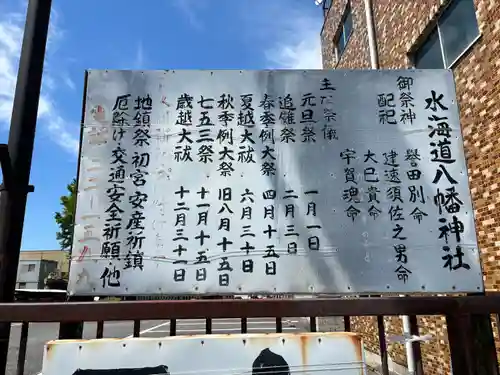 水海道八幡神社
御祭神 誉田別命
配祀 建速須佐之男命
大己貴命
宇賀魂命
主な祭儀
元旦祭 一月一日
追儺祭 二月三日
春季例大祭 四月十五日
夏越大祓 六月三十日
秋季例大祭 旧八月十五日
七五三祭 十一月十五日
歳越大祓 十二月三十一日
地鎮祭 初宮 安産祈願
厄除け 交通安全祈願 他